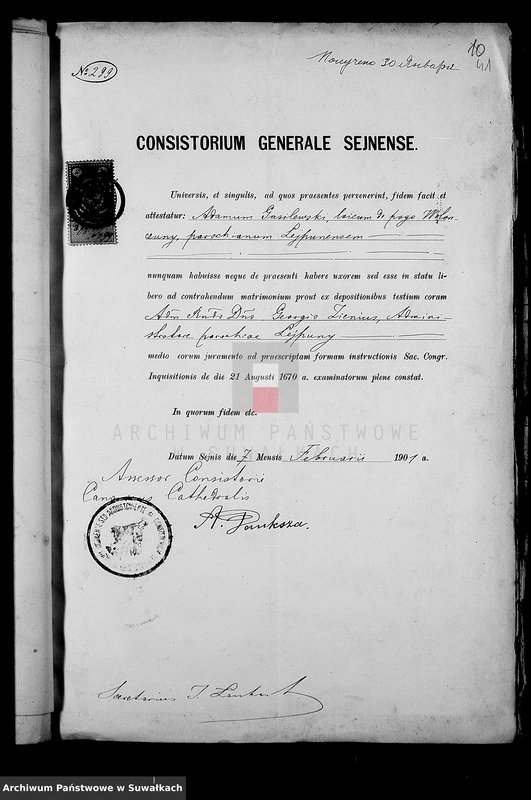 № 299
30 Января
10
41
CONSISTORIUM GENERALE SEJNENSE.
Universis, et singulis, ad quos praesentes pervenerint, fidem facit et
attestatur: Adamum Gasilewski, laicum de pago
parochianum Lejpunensem
nunquam habuisse neque de praesenti habere uxorem sed esse in statu li-
bero ad contrahendum matrimonium prout ex depositionibus testium coram
Adm Rndo Dno Georgio Zienius, Admini-
stratore parochiae Lejpuny
medio eorum juramento ad praescriptam formam instructionis Sac. Congr.
Inquisitionis de die 21 Augusti 1670 a. examinatorum plene constat.
In quorum fidem etc.
ARCHIWUM PAŃSTWOWE
W SUWAŁKACH
Datum Sejnis die 7 Mensis Februarii 1901 a.
Assessor Consistorii
Canonicus Cathedralis
A.
Secretarius J.
Archiwum Państwowe w Suwałkach